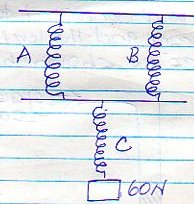 A
B
C
60N